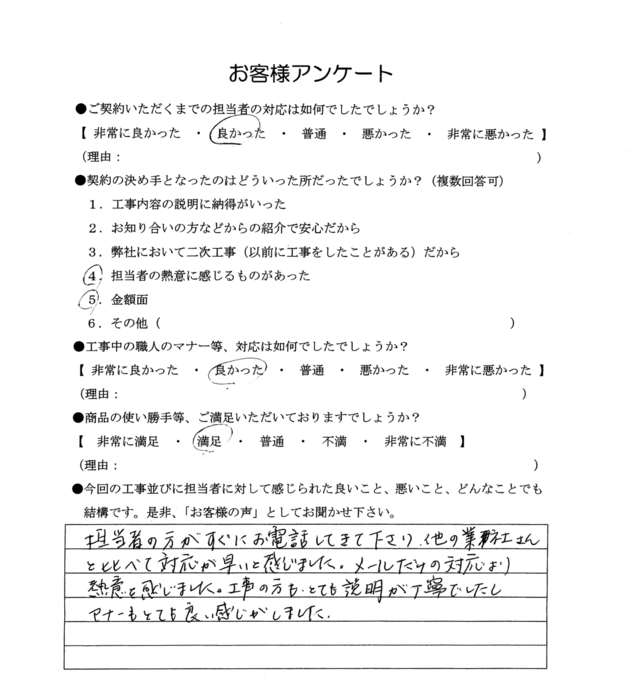 お客様アンケート
●ご契約いただくまでの担当者の対応は如何でしたでしょうか？
【 非常に良かった ・ 良かった ・ 普通 ・ 悪かった ・ 非常に悪かった 】
（理由： ）
●契約の決め手となったのはどういった所だったでしょうか？（複数回答可）
１．工事内容の説明に納得がいった
２．お知り合いの方などからの紹介で安心だから
３．弊社において二次工事（以前に工事をしたことがある）だから
４．担当者の熱意に感じるものがあった
５．金額面
６．その他（ ）
●工事中の職人のマナー等、対応は如何でしたでしょうか？
【 非常に良かった ・ 良かった ・ 普通 ・ 悪かった ・ 非常に悪かった 】
（理由： ）
●商品の使い勝手等、ご満足いただいておりますでしょうか？
【 非常に満足 ・ 満足 ・ 普通 ・ 不満 ・ 非常に不満 】
（理由： ）
●今回の工事並びに担当者に対して感じられた良いこと、悪いこと、どんなことでも
結構です。是非、「お客様の声」としてお聞かせ下さい。
担当者の方がすぐにお電話してきて下さり、他の業者社さん
とくらべて対応が早いと感じました。メールだけの対応より
熱意を感じました。工事の方も、とても説明が丁寧でしたし
マナーもとても良い感じがしました。